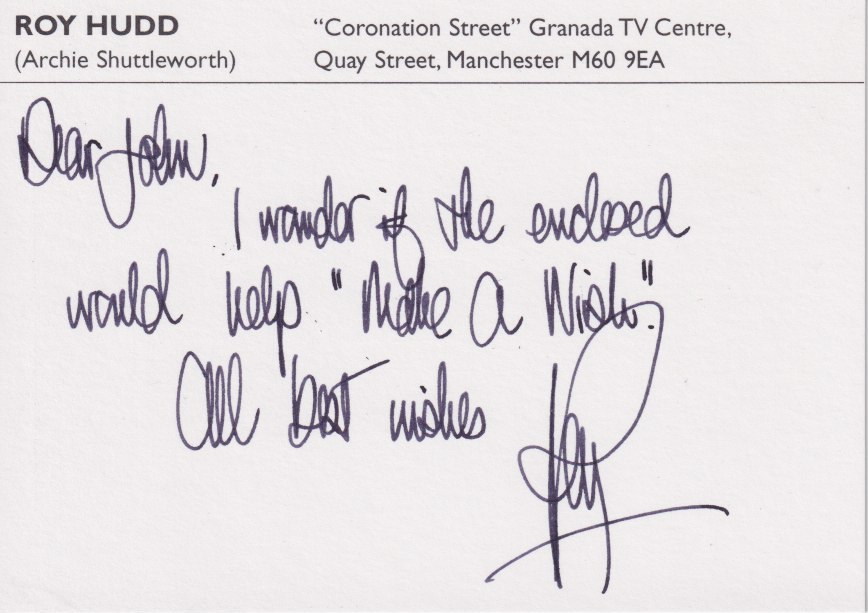 ROY HUDD
(Archie Shuttleworth)
“Coronation Street” Granada TV Centre,
Quay Street, Manchester M60 9EA
Dear John,
I wonder if the enclosed
would help "Make A Wish".
All best wishes
Roy